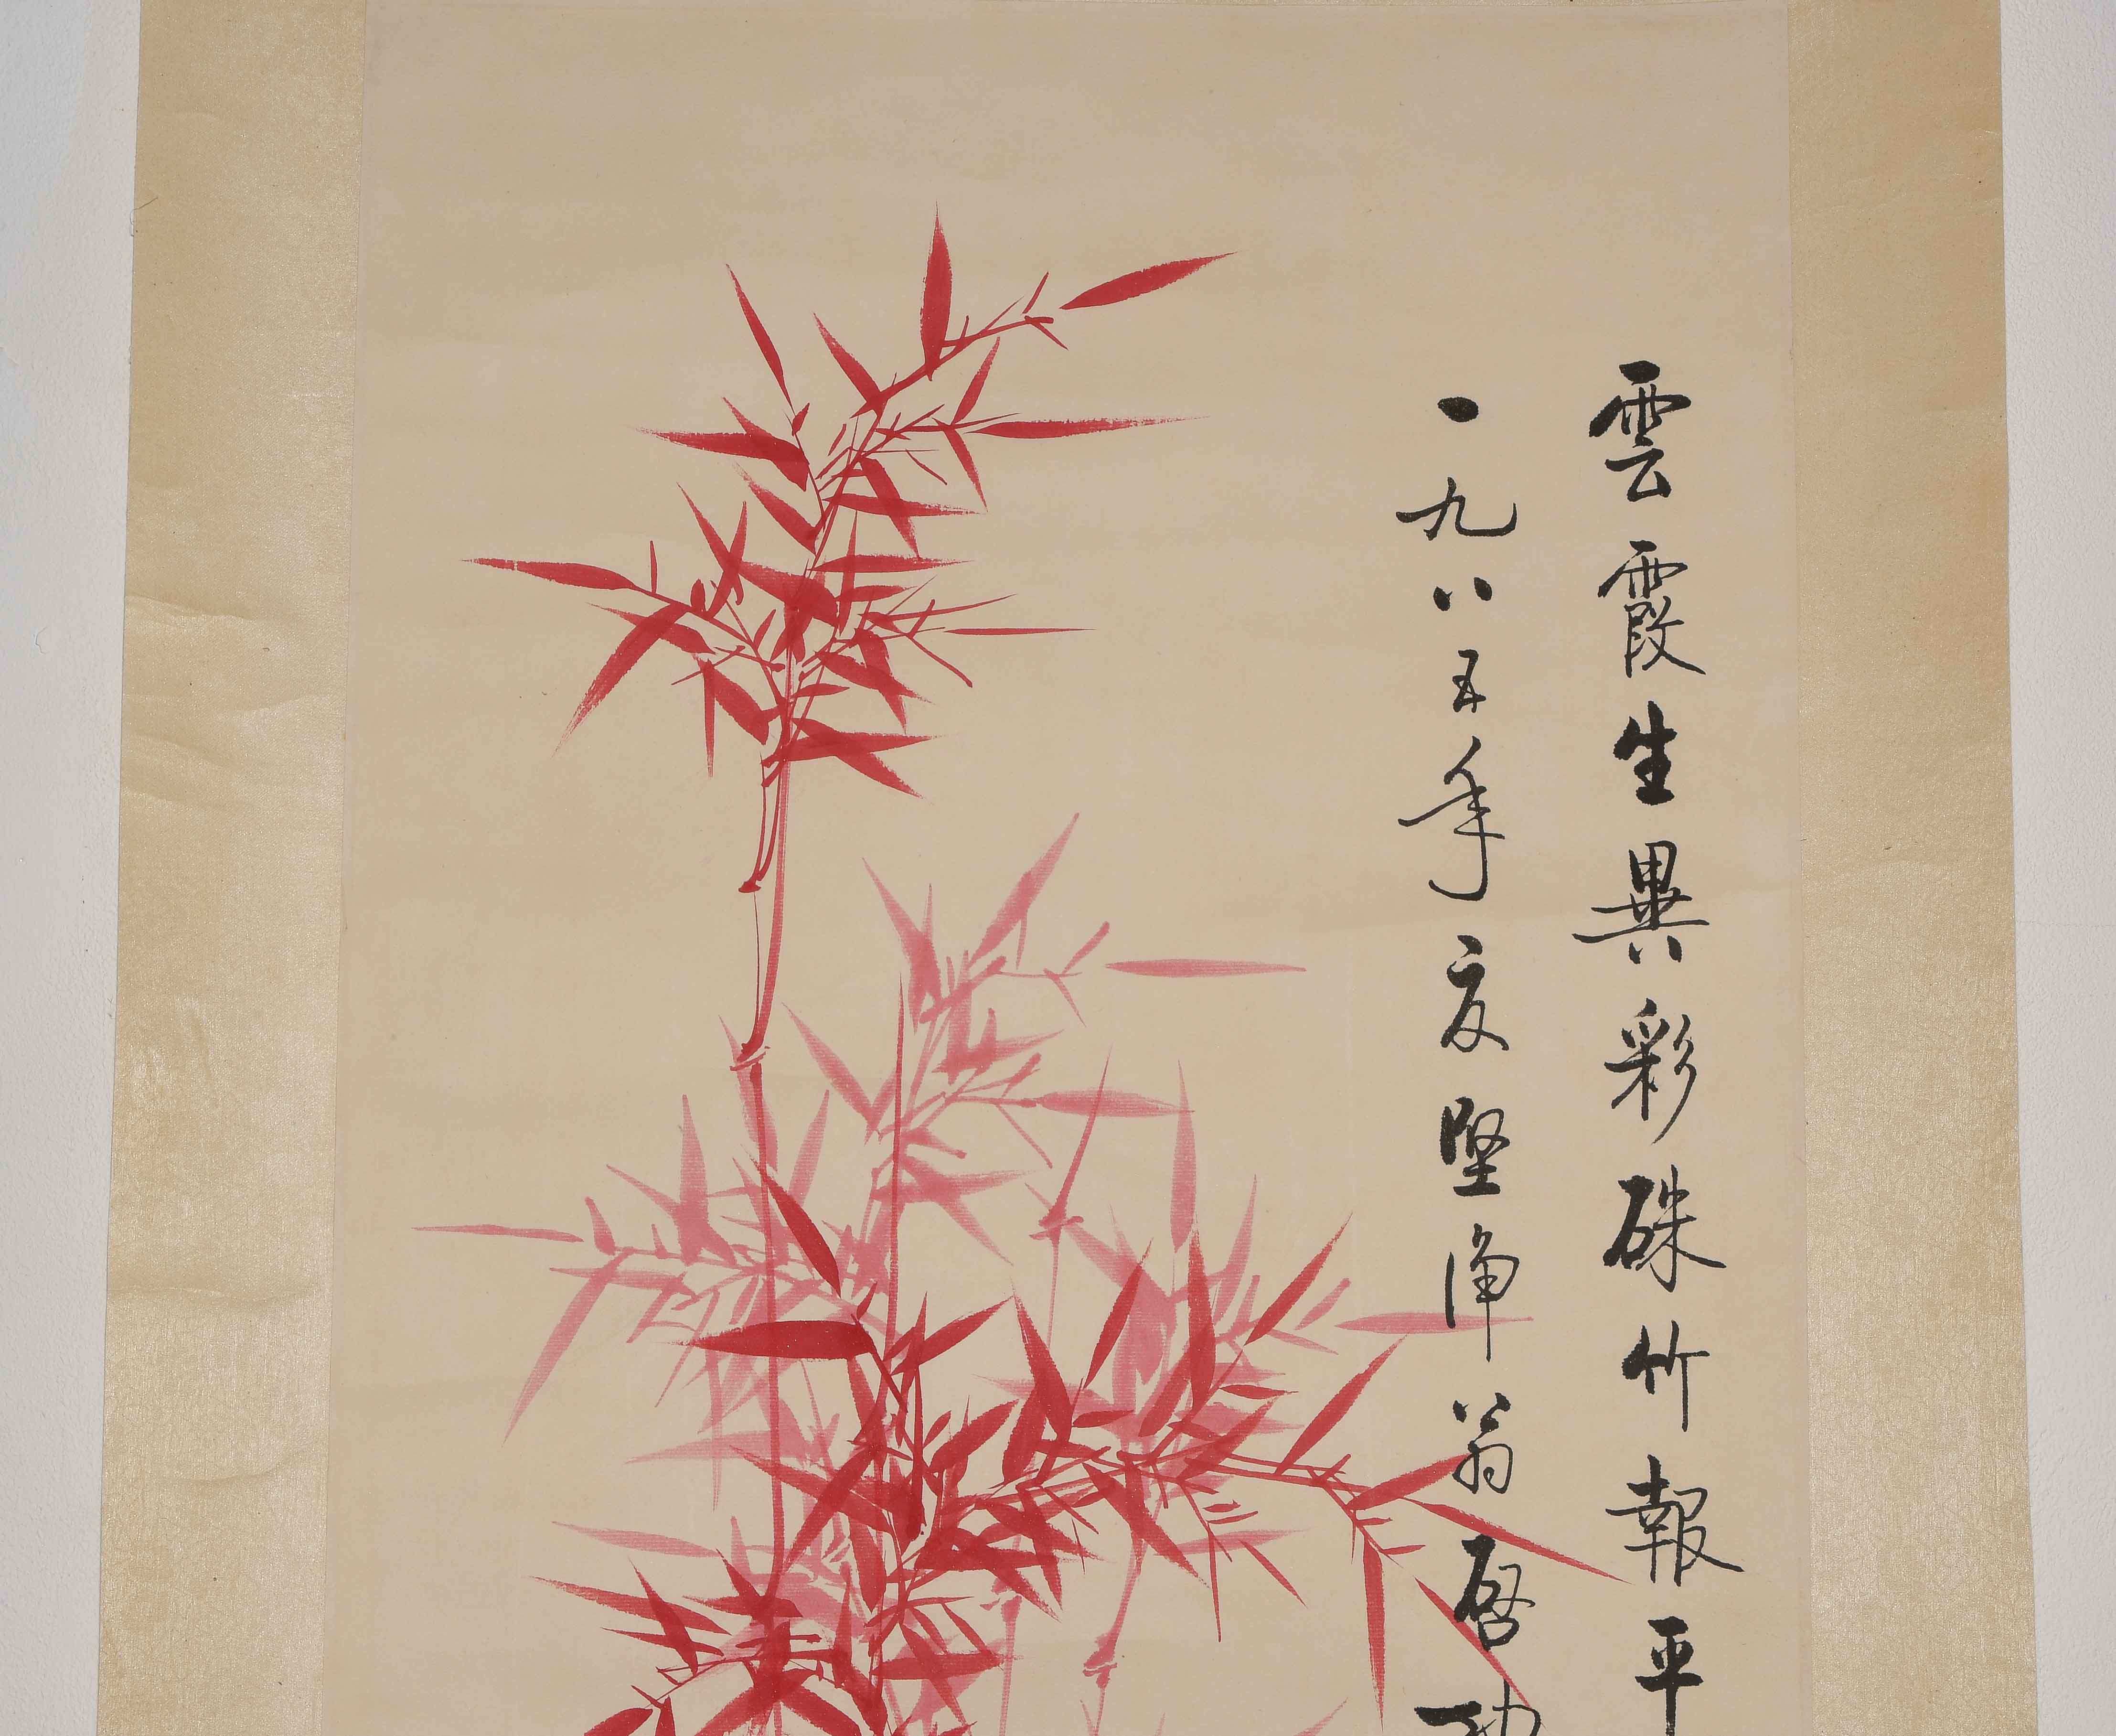 雲霞生異彩硃竹報平
一九八五年夏堅淨翁啓功